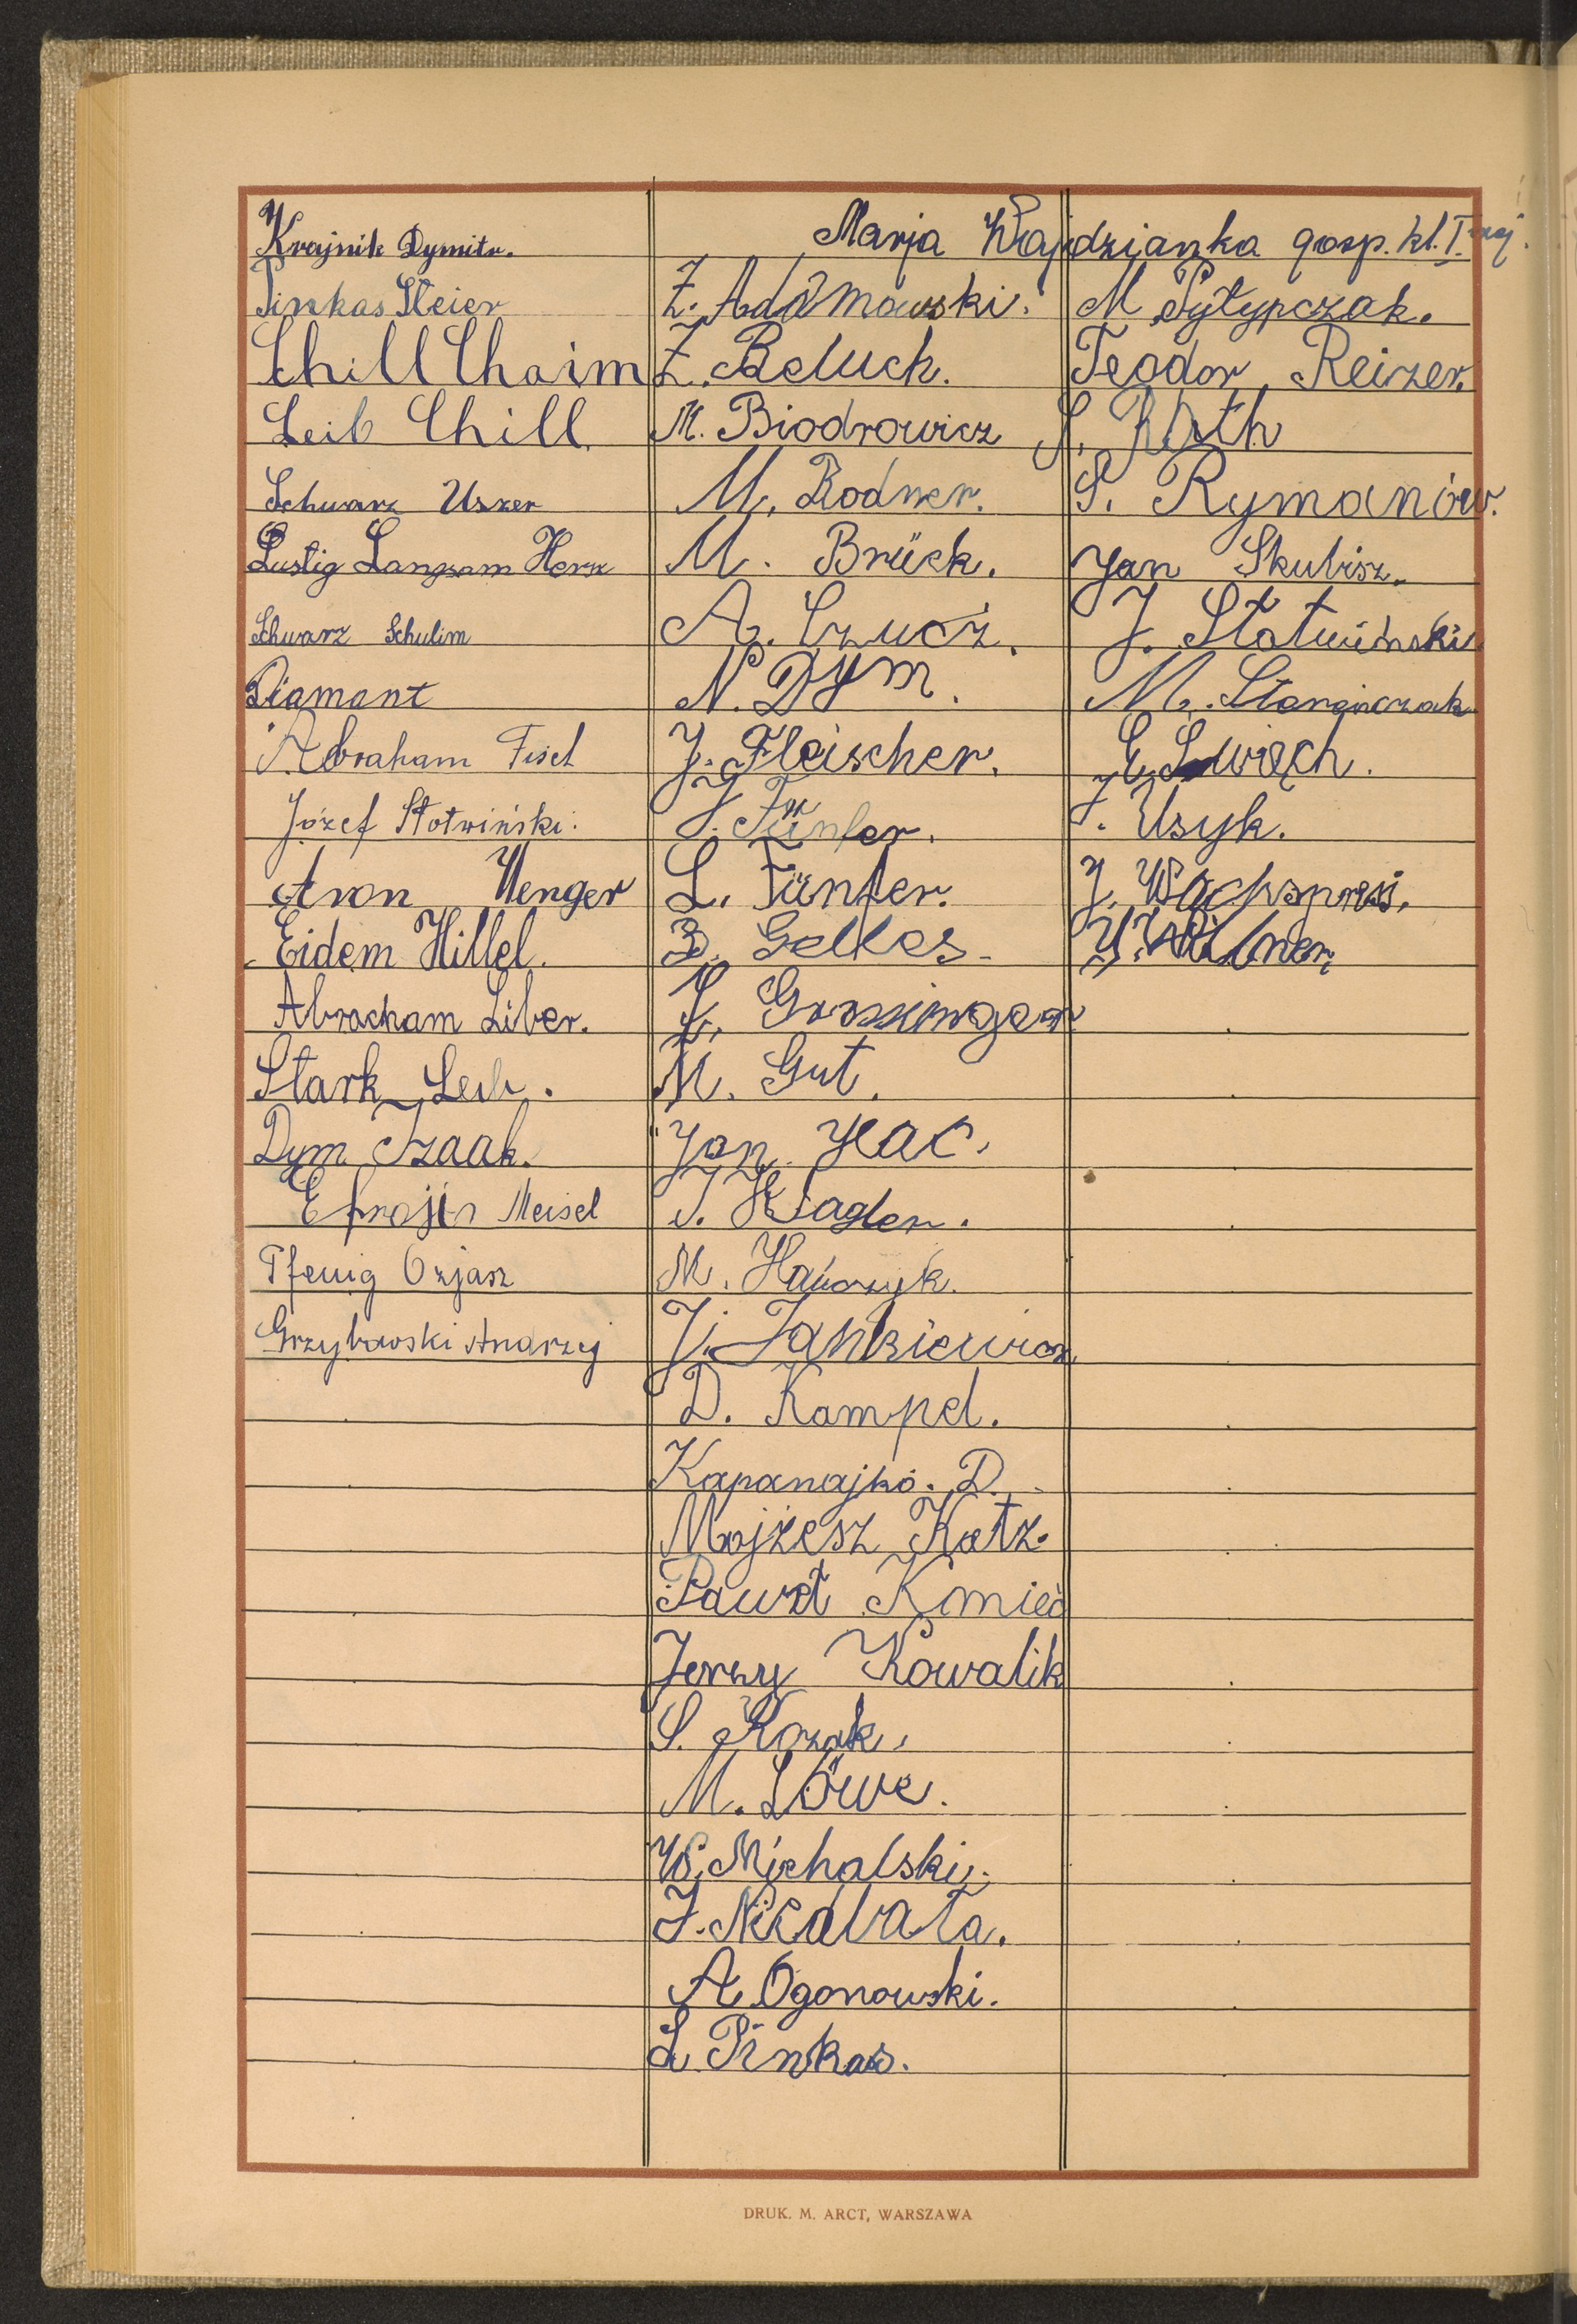 Krajnik Dymitr.
Pinkas Steier
Chill Chaim
Leib Chill
Schwarz Uszer
Lustig Langsam Hersz
Schwarz Schulim
Diamant
Abraham Fisch
Józef Stotwiński.
Aron Wenger
Eidem Hillel.
Abracham Liber.
Stark Leib.
Dym Izaak.
Efrojim Meisel
Pfenig Ozjasz
Grzybowski Andrzej
Marja Wajdzianka gosp. kl. I-szej.
Z. Adamowski.
Z. Beluch.
M. Biodrowicz
M. Bodner.
M. Brück.
A. Czucz.
N. Dym.
J. Fleischer.
J. Fünfer.
L. Fünfer.
B. Gelles.
L. Grossinger
M. Gut.
Jan Hac.
J. Hagler.
M. Hańczyk.
J. Jankiewicz
D. Kampel.
Kapanajko. D.
Mojżesz Katz.
Paweł Kmieć
Jerzy Kowalik
S. Kozak.
M. Löwe.
W. Michalski.
J. Niedbała.
A. Ogonowski.
L. Pinkas.
M. Pytypczak.
Teodor Reizer.
S. Roth
S. Rymanów.
Jan Skubisz.
J. Stotwiński
M. Starończak
J. Usyk.
J. Wachspress.
DRUK. M. ARCT, WARSZAWA